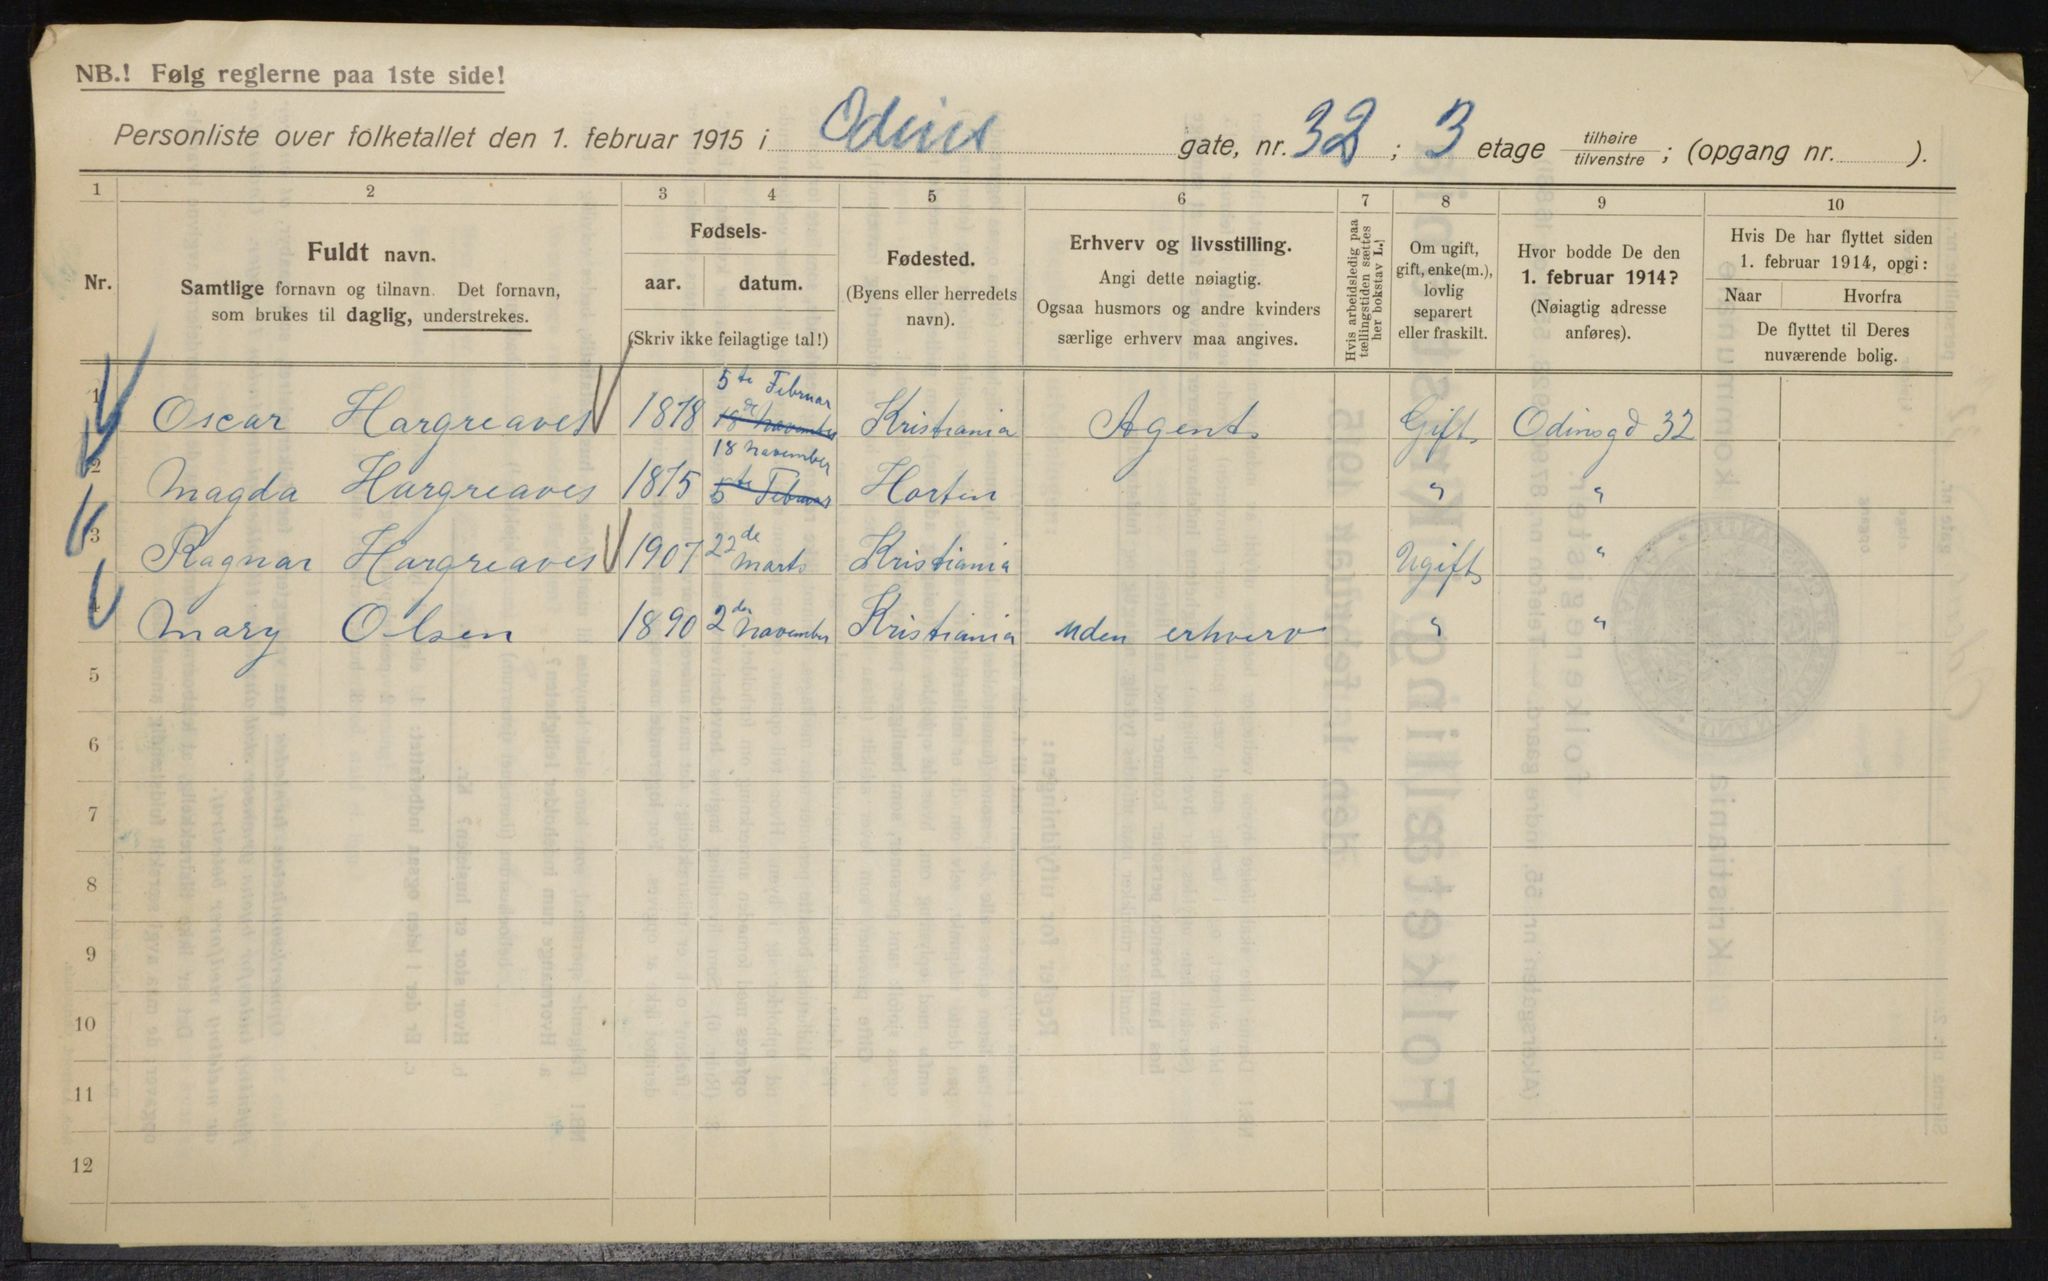 NB.! Følg reglerne paa 1ste side!
Personliste over folketallet den 1. februar 1915 i Odins gate, nr. 32 ; 3 etage tilhøire tilvenstre ; (opgang nr. ).
1 2 3 4 5 6 7 8 9 10
Nr.
Fuldt navn.
Samtlige fornavn og tilnavn. Det fornavn,
som brukes til daglig, understrekes.
Fødsels-
aar. datum.
(Skriv ikke feilagtige tal!)
Fødested.
(Byens eller herredets
navn).
Erhverv og livsstilling.
Angi dette nøiagtig.
Ogsaa husmors og andre kvinders
særlige erhverv maa angives.
Hvis arbeidsledig paa
tællingstiden sættes
her bokstav L.
Om ugift,
gift, enke(m.),
lovlig
separert
eller fraskilt.
Hvor bodde De den
1. februar 1914?
(Nøiagtig adresse
anføres).
Hvis De har flyttet siden
1. februar 1914, opgi:
Naar Hvorfra
De flyttet til Deres
nuværende bolig.
5te Februar
1 Oscar Hargreaves 1878 18de November Kristiania Agent Gift Odinsgd 32
18 November
2 Magda Hargreaves 1875 5te Februar Horten " "
3 Ragnar Hargreaves 1907 22de Marts Kristiania Ugift "
4 Mary Olsen 1890 2den November Kristiania uden erhverv " "
5
6
7
8
9
10
11
12